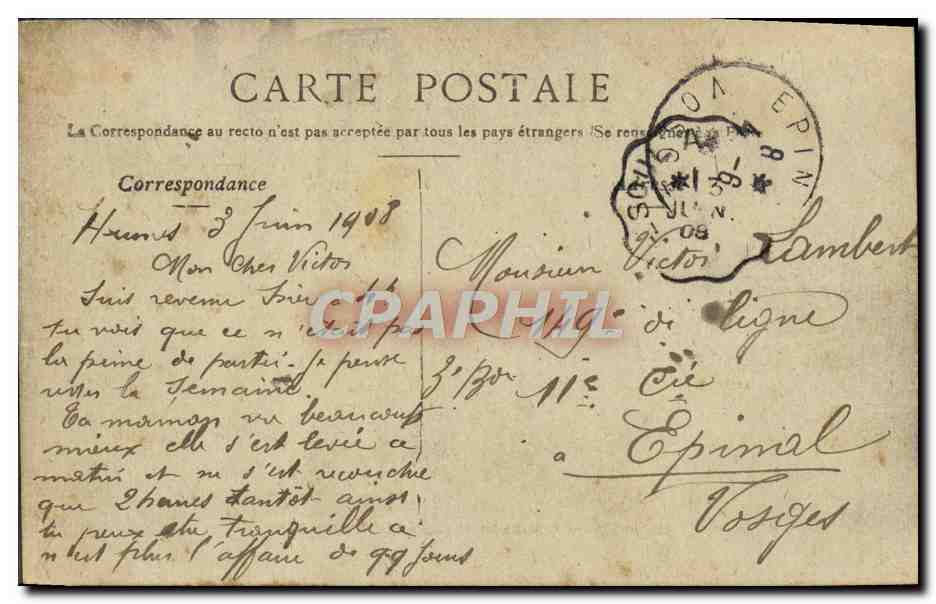 CARTE POSTALE
La Correspondance au recto n'est pas acceptée par tous les pays étrangers (Se renseigner à la
Correspondance
3 Juin 1908
Mon cher Victor
Suis revenu hier
tu vois que ce n'était pas
la peine de partir. Je pense
rester la Semaine
Ta maman va beaucoup
mieux elle s'est levée ce
matin et ne s'est recouchée
que 2 heures tantôt ainsi
tu peux etre tranquille ce
n'est plus l'affaire de qq Jours
Monsieur Victor Lambert
149e de ligne
3e Bon 11e Cie
a Epinal
Vosges
EPIN
JUIN
08
CPAPHIL